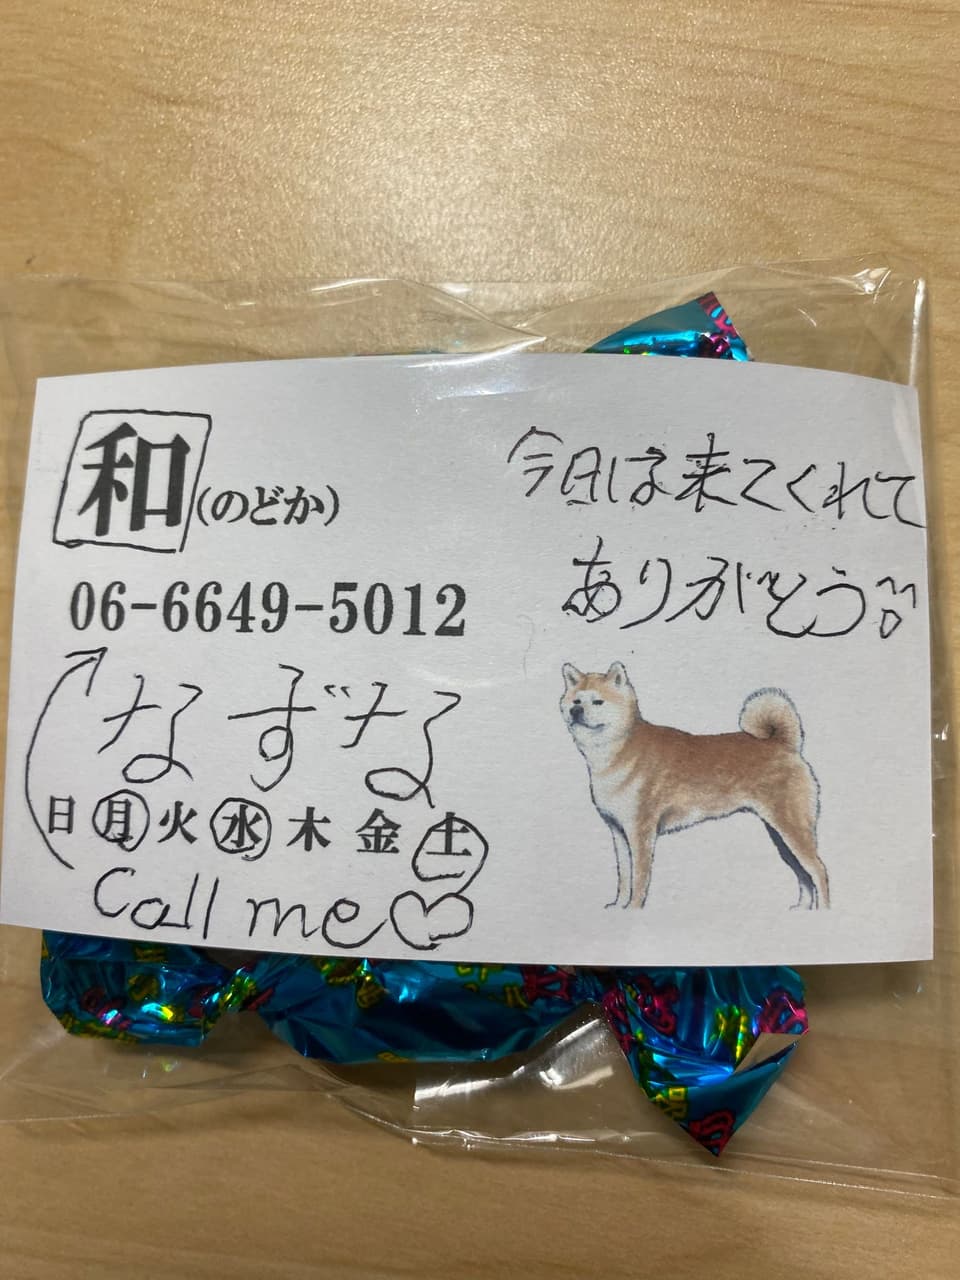 和(のどか)
06-6649-5012
なずな
日月火水木金土
Call me♡
今日は来てくれて
ありがとう